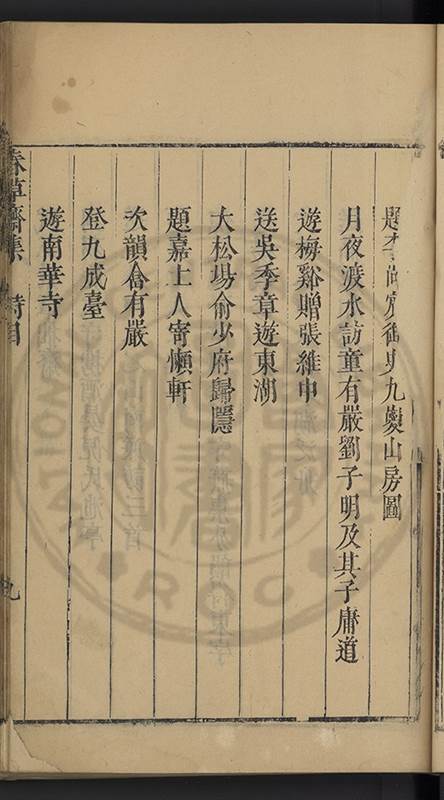 題李尚賓御史九夔山房圖
月夜渡水訪童有嚴劉子明及其子庸道
遊梅谿贈張維中
送吳季章遊東湖
大松場俞少府歸隱
題嘉上人寄懶軒
次韻酓有嚴
登九成臺
遊南華寺
春草齋集 詩目 九